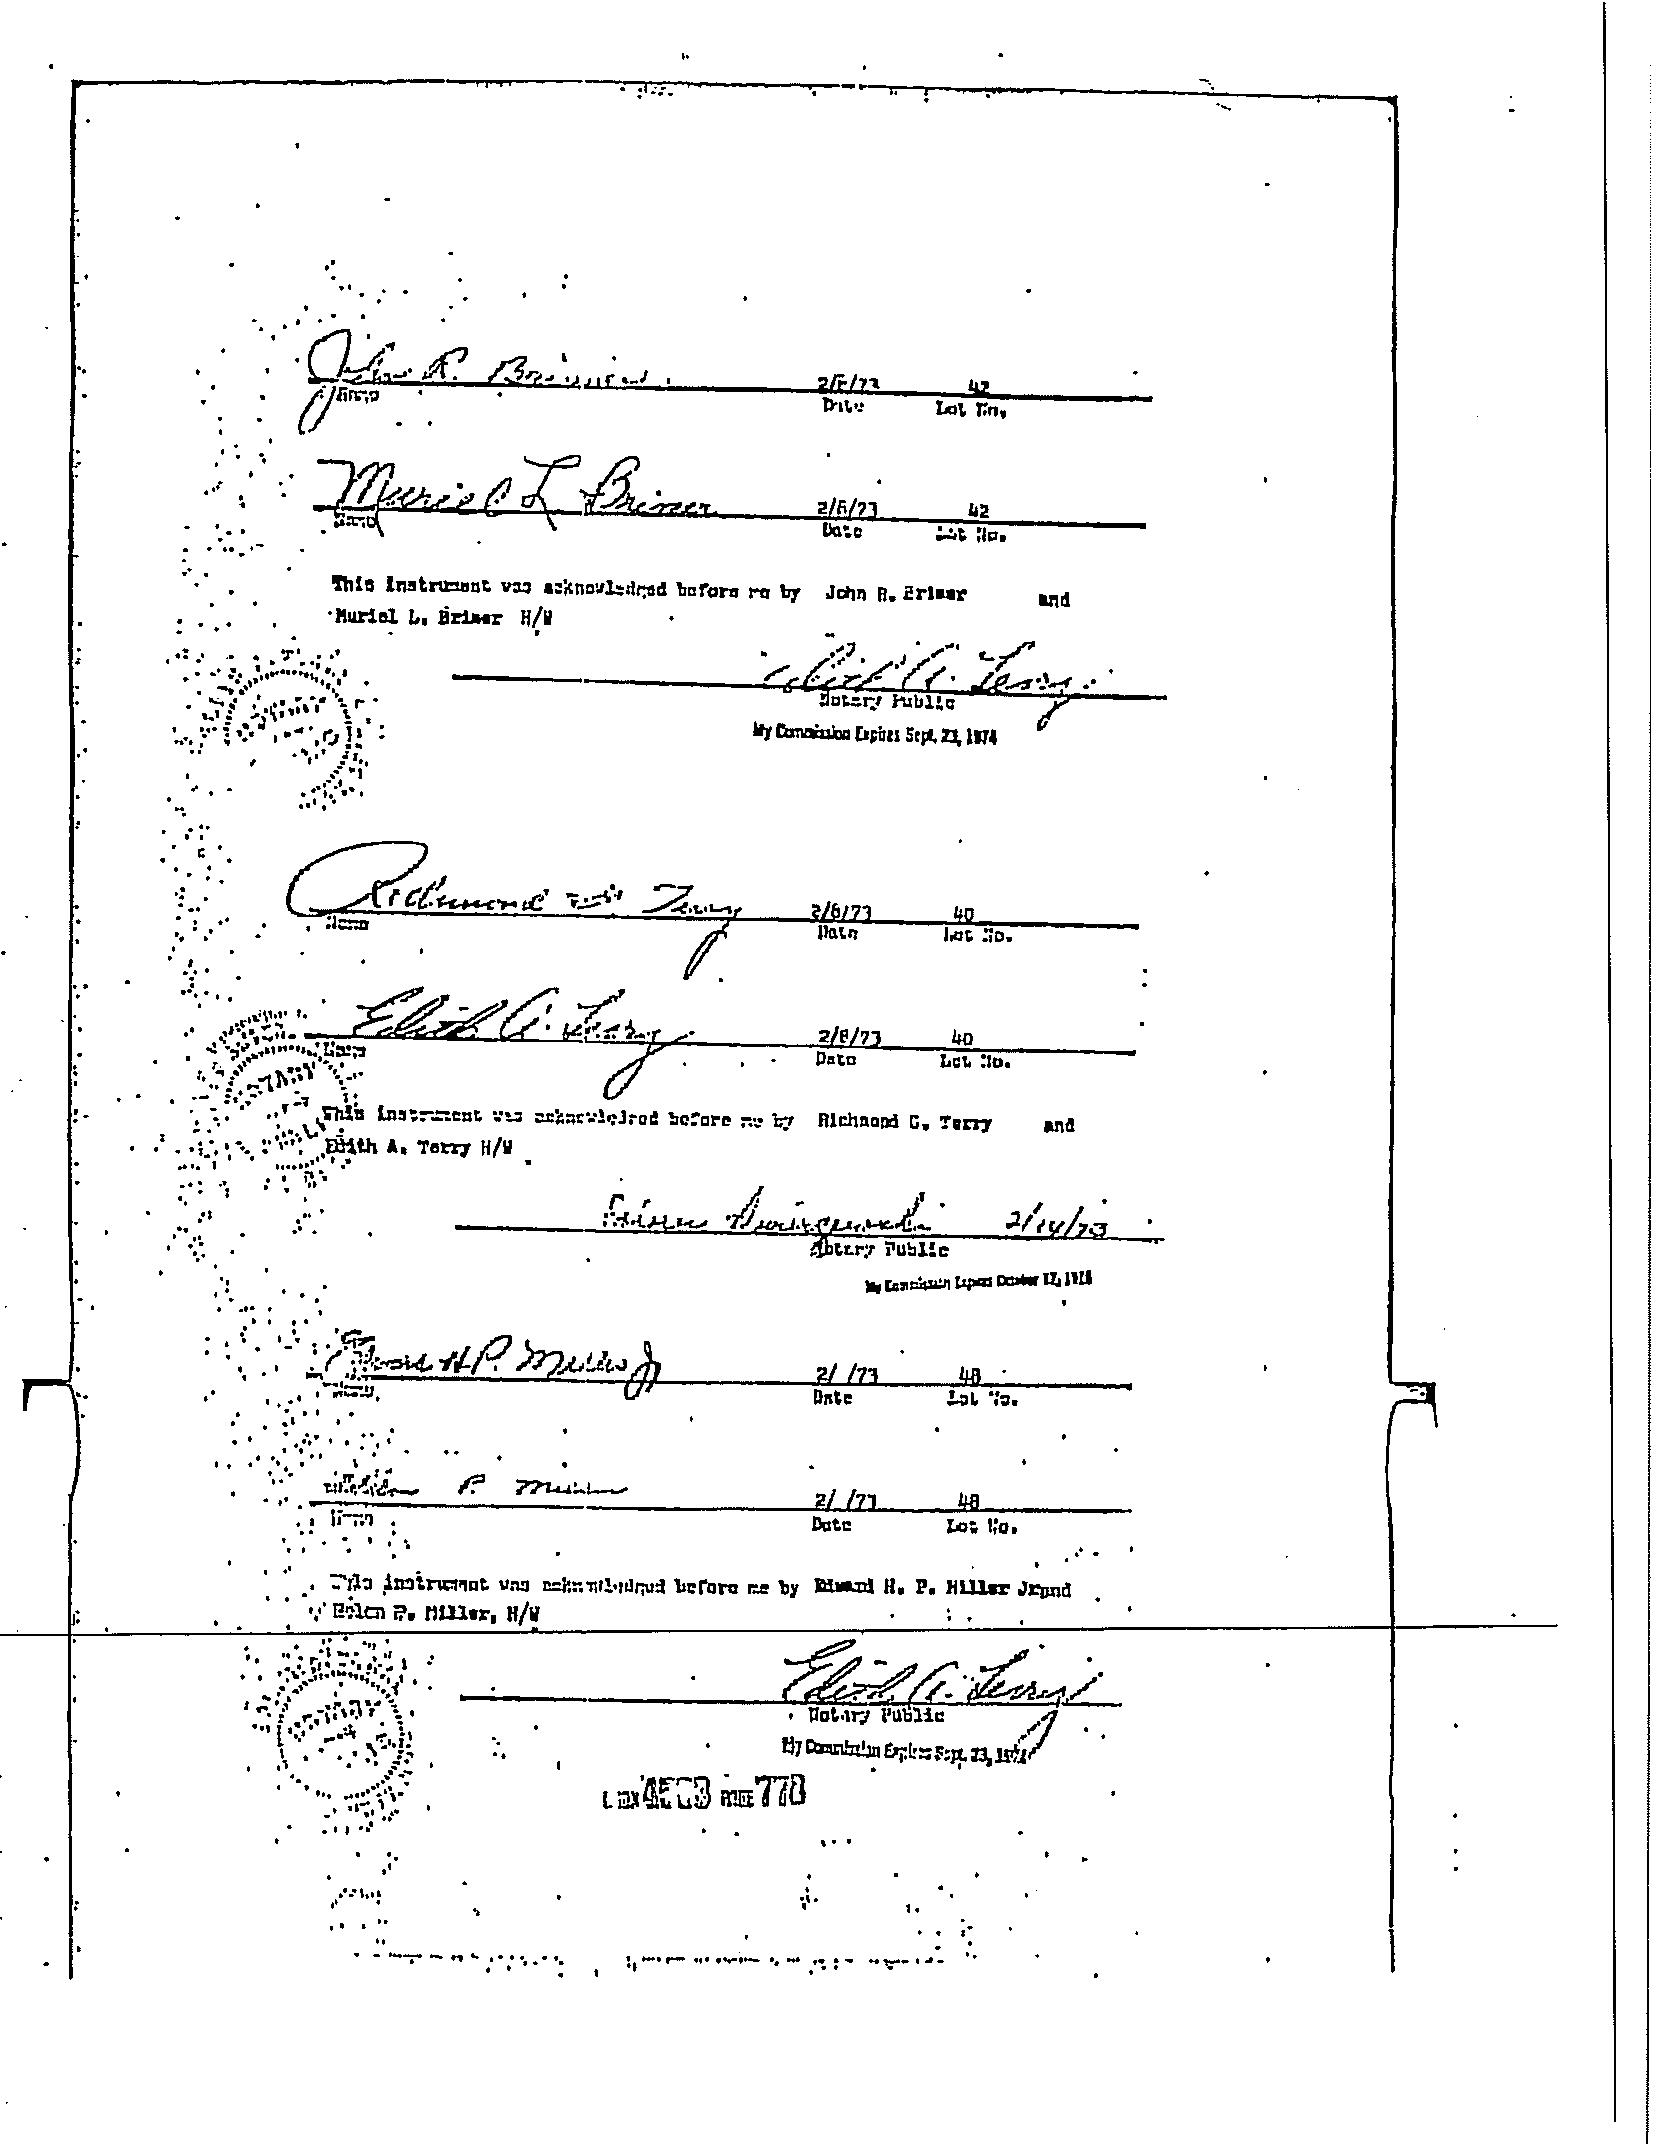 John R. Brimer 2/ /73 42
Name Date Lot No.
Muriel L Brimer 2/ /73 42
Name Date Lot No.
This instrument was acknowledged before me by John R. Brimer and
Muriel L. Brimer H/W
Edith A. Terry
Notary Public
My Commission Expires Sept. 23, 1974
Richmond Terry 2/8/73 40
Name Date Lot No.
Edith A. Terry 2/8/73 40
Name Date Lot No.
NOTARY PUBLIC
This instrument was acknowledged before me by Richmond G. Terry and
Edith A. Terry H/W
2/14/73
Notary Public
My Commission Expires October
Edward H.P. Miller Jr 2/ /73 48
Name Date Lot No.
Helen P. Miller 2/ /73 48
Name Date Lot No.
This instrument was acknowledged before me by Edward H. P. Miller Jrand
Helen P. Miller, H/W
NOTARY
Edith A. Terry
Notary Public
My Commission Expires Sept. 23, 1974
PAGE 770